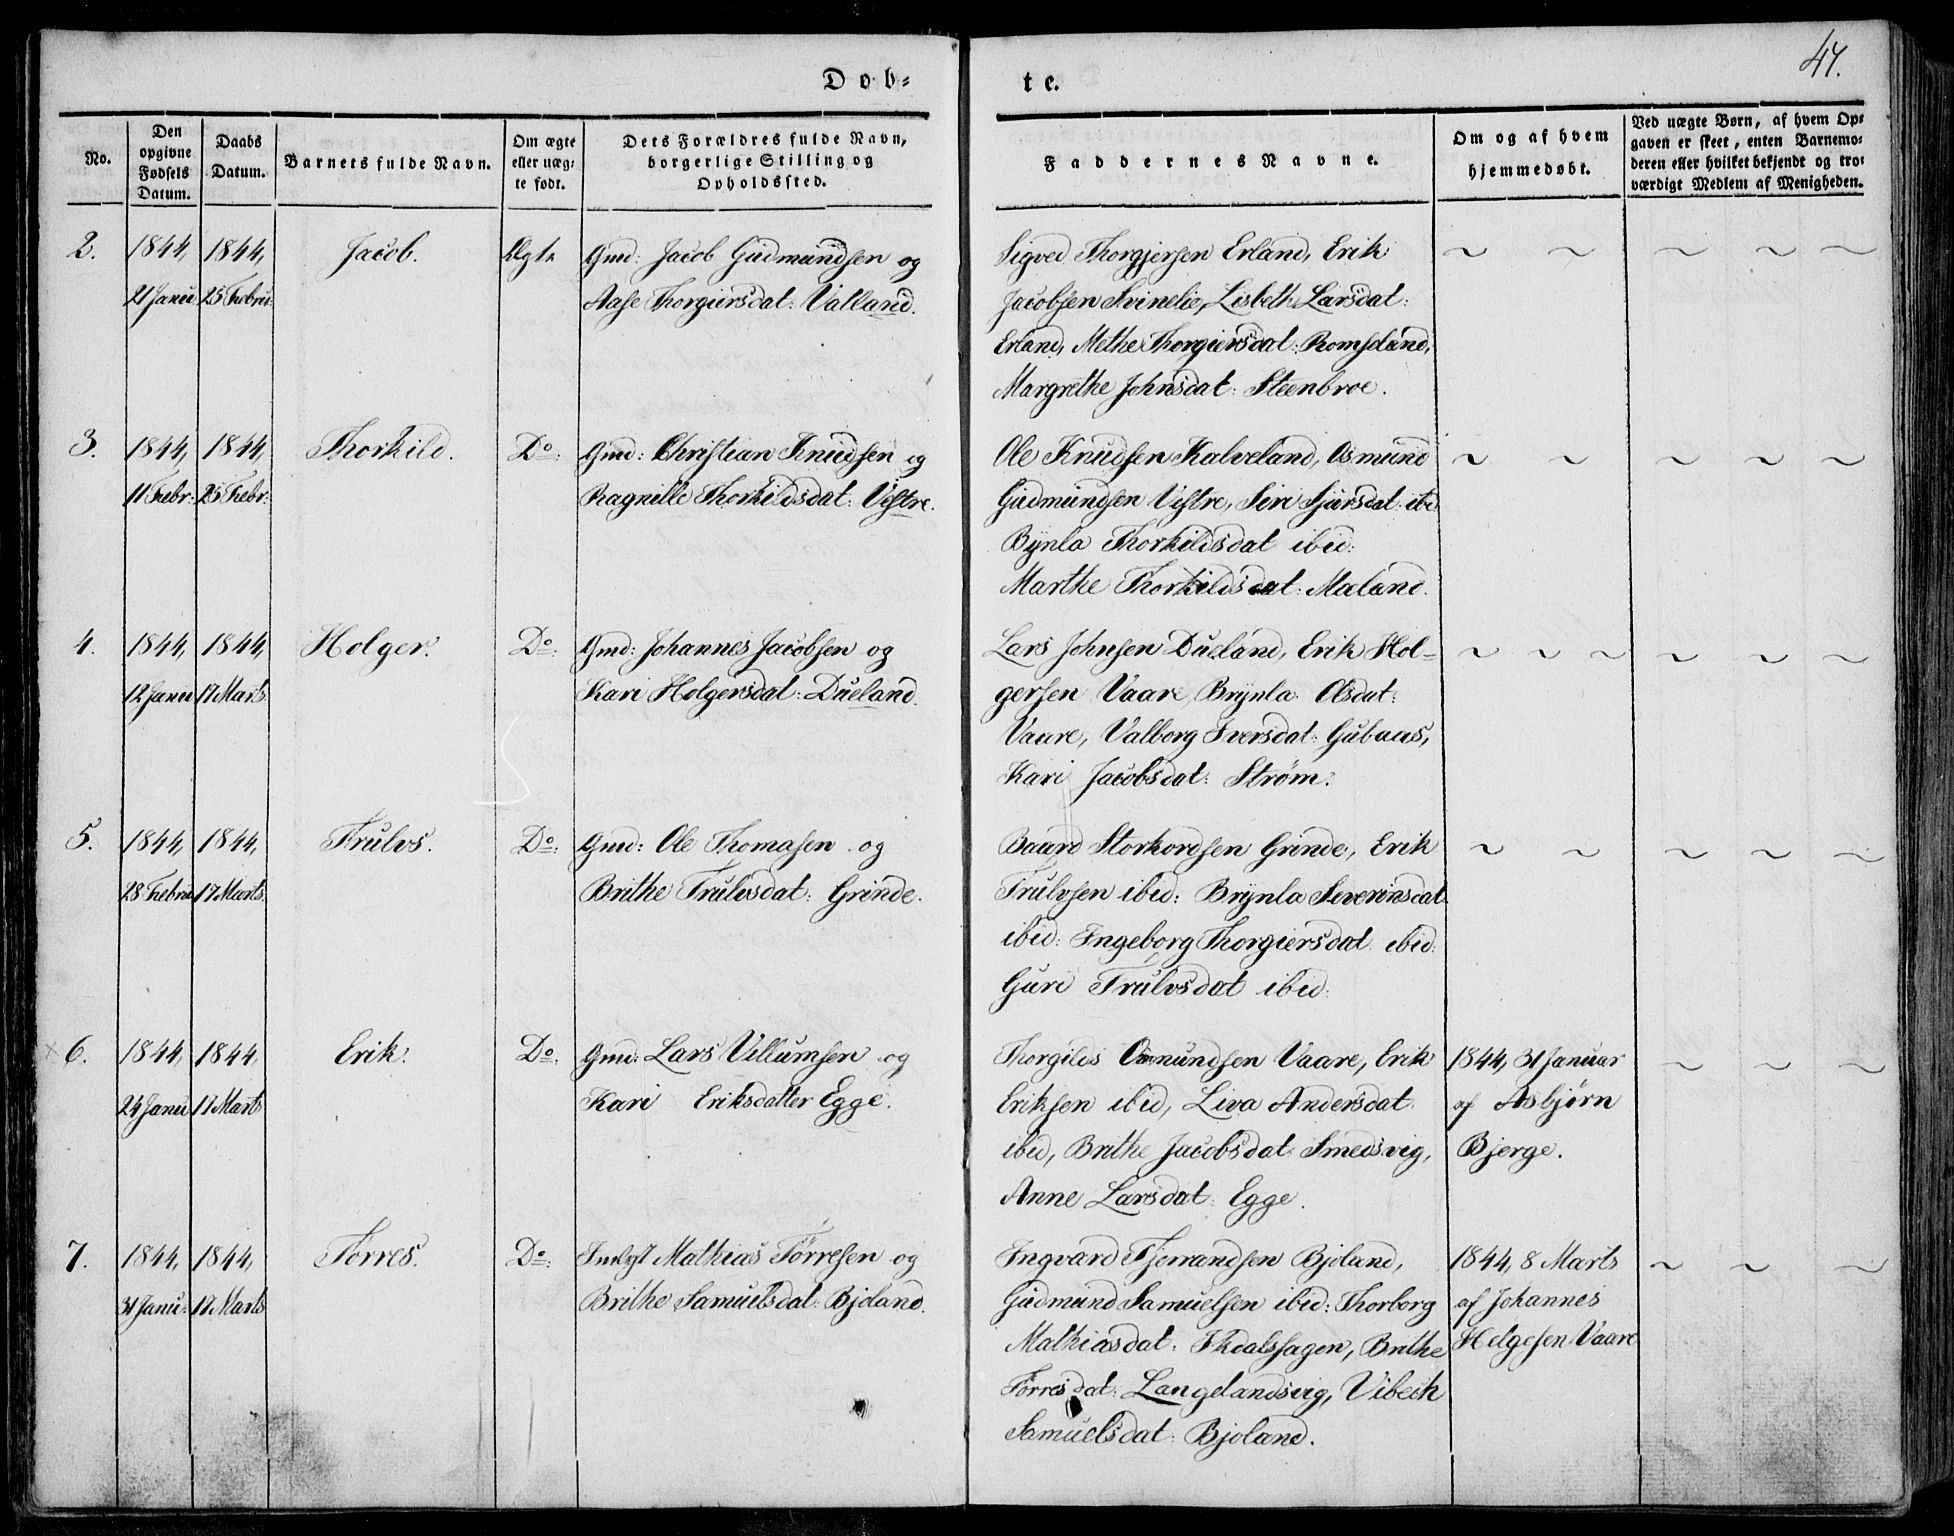 47.
Døb=
te.
No.
Den opgivne Fødsels Datum.
Daabs Datum.
Barnets fulde Navn.
Om ægte eller uæg= te født.
Dets Forældres fulde Navn, borgerlige Stilling og Opholdssted.
Faddernes Navne.
Om og af hvem hjemmedøbt.
Ved uægte Børn, af hvem Op= gaven er skeet, enten Barnemo= deren eller hvilket bekjendt og tro= værdigt Medlem af Menigheden.
2. 1844, 1844, Jacob. Ægte Gmd: Jacob Gudmundsen og
21 Janu: 25 Febru: Aase Thorgiersdat: Valland.
Sigved Thorgjersen Erland, Erik
Jacobsen Svinelie, Lisbeth Larsdat:
Erland, Methe Thorgiersdat: Romseland,
Margrethe Johnsdat: Steenbroe.
3. 1844, 1844, Thorkild. Do: Gmd: Christian Knudsen og
11 Febr: 25 Febr: Ragnille Thorkildsdat: Vestre.
Ole Knudsen Kalveland, Osmund
Gudmundsen Vestre, Siri Sjursdat: ibd
Bynla Thorkildsdat ibid:
Marthe Thorkildsdat: Maland.
4. 1844, 1844, Holger. Do: Gmd: Johannes Jacobsen og
12 Janu 17 Marts Kari Holgersdat: Dueland.
Lars Johnsen Dueland, Erik Hol=
gersen Vaare, Brynla Olsdat:
Vaare, Valborg Iversdat: Gubaas,
Kari Jacobsdat: Strøm.
5. 1844, 1844, Trulvs. Do: Gmd: Ole Thomasen og
28 Febru 17 Marts. Brithe Trulvsdat: Grinde.
Baard Storkordsen Grinde, Erik
Trulvsen ibid: Brynla Severinsdat:
ibid: Ingeborg Thorgiersdat: ibid:
Guri Trulvsdat ibid:
6. 1844, 1844, Erik. Do: Gmd: Lars Villumsen og
24 Janu 17 Marts Kari Eriksdatter Egge.
Thorgils Osmundsen Vaare, Erik
Eriksen ibid, Liva Andersdat:
ibid, Brithe Jacobsdat: Smedsvig,
Anne Larsdat: Egge.
1844, 31 Januar
af Asbjørn
Bjerge.
7. 1844, 1844, Tørres. Do: Indlgst Mathias Tørresen og
31 Janu: 17 Marts Brithe Samuelsdat: Bjoland.
Ingvard Fjerrandsen Bjoland,
Gudmund Samuelsen ibid: Thorborg
Mathiasdat: Brithe
Tørresdat: Langelandsvig, Vibech
Samuelsdat: Bjoland.
1844, 8 Marts
af Johannes
Helgesen Vaare